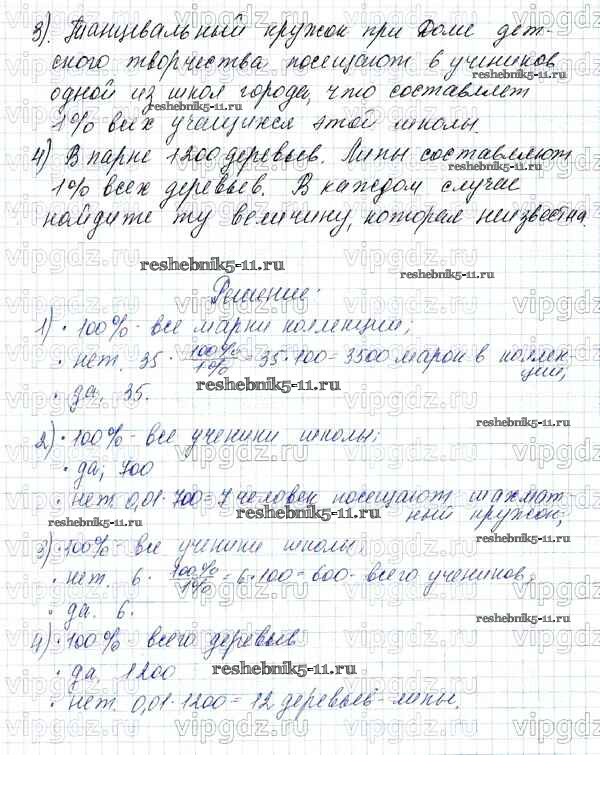 3). Танцевальный кружок при Доме дет-
ского творчества посещают 6 учеников
одной из школ города, что составляет
1% всех учащихся этой школы.
4) В парке 1200 деревьев. Липы составляют
1% всех деревьев. В каждом случае
найдите ту величину, которая неизвестна.
Решение:
1) • 100% - все марки коллекции;
• нет. 35 · 100%/1% = 35 · 100 = 3500 марок в коллек-
ции;
• да, 35.
2) • 100% - все ученики школы;
• да; 700
• нет. 0,01 · 700 = 7 человек посещают шахмат-
ный кружок;
3) • 100% - все ученики школы;
• нет. 6 · 100%/1% = 6 · 100 = 600 - всего учеников;
• да. 6.
4) • 100% - всего деревьев
• да, 1200
• нет. 0,01 · 1200 = 12 деревьев - липы.
reshebnik5-11.ru
vipgdz.ru